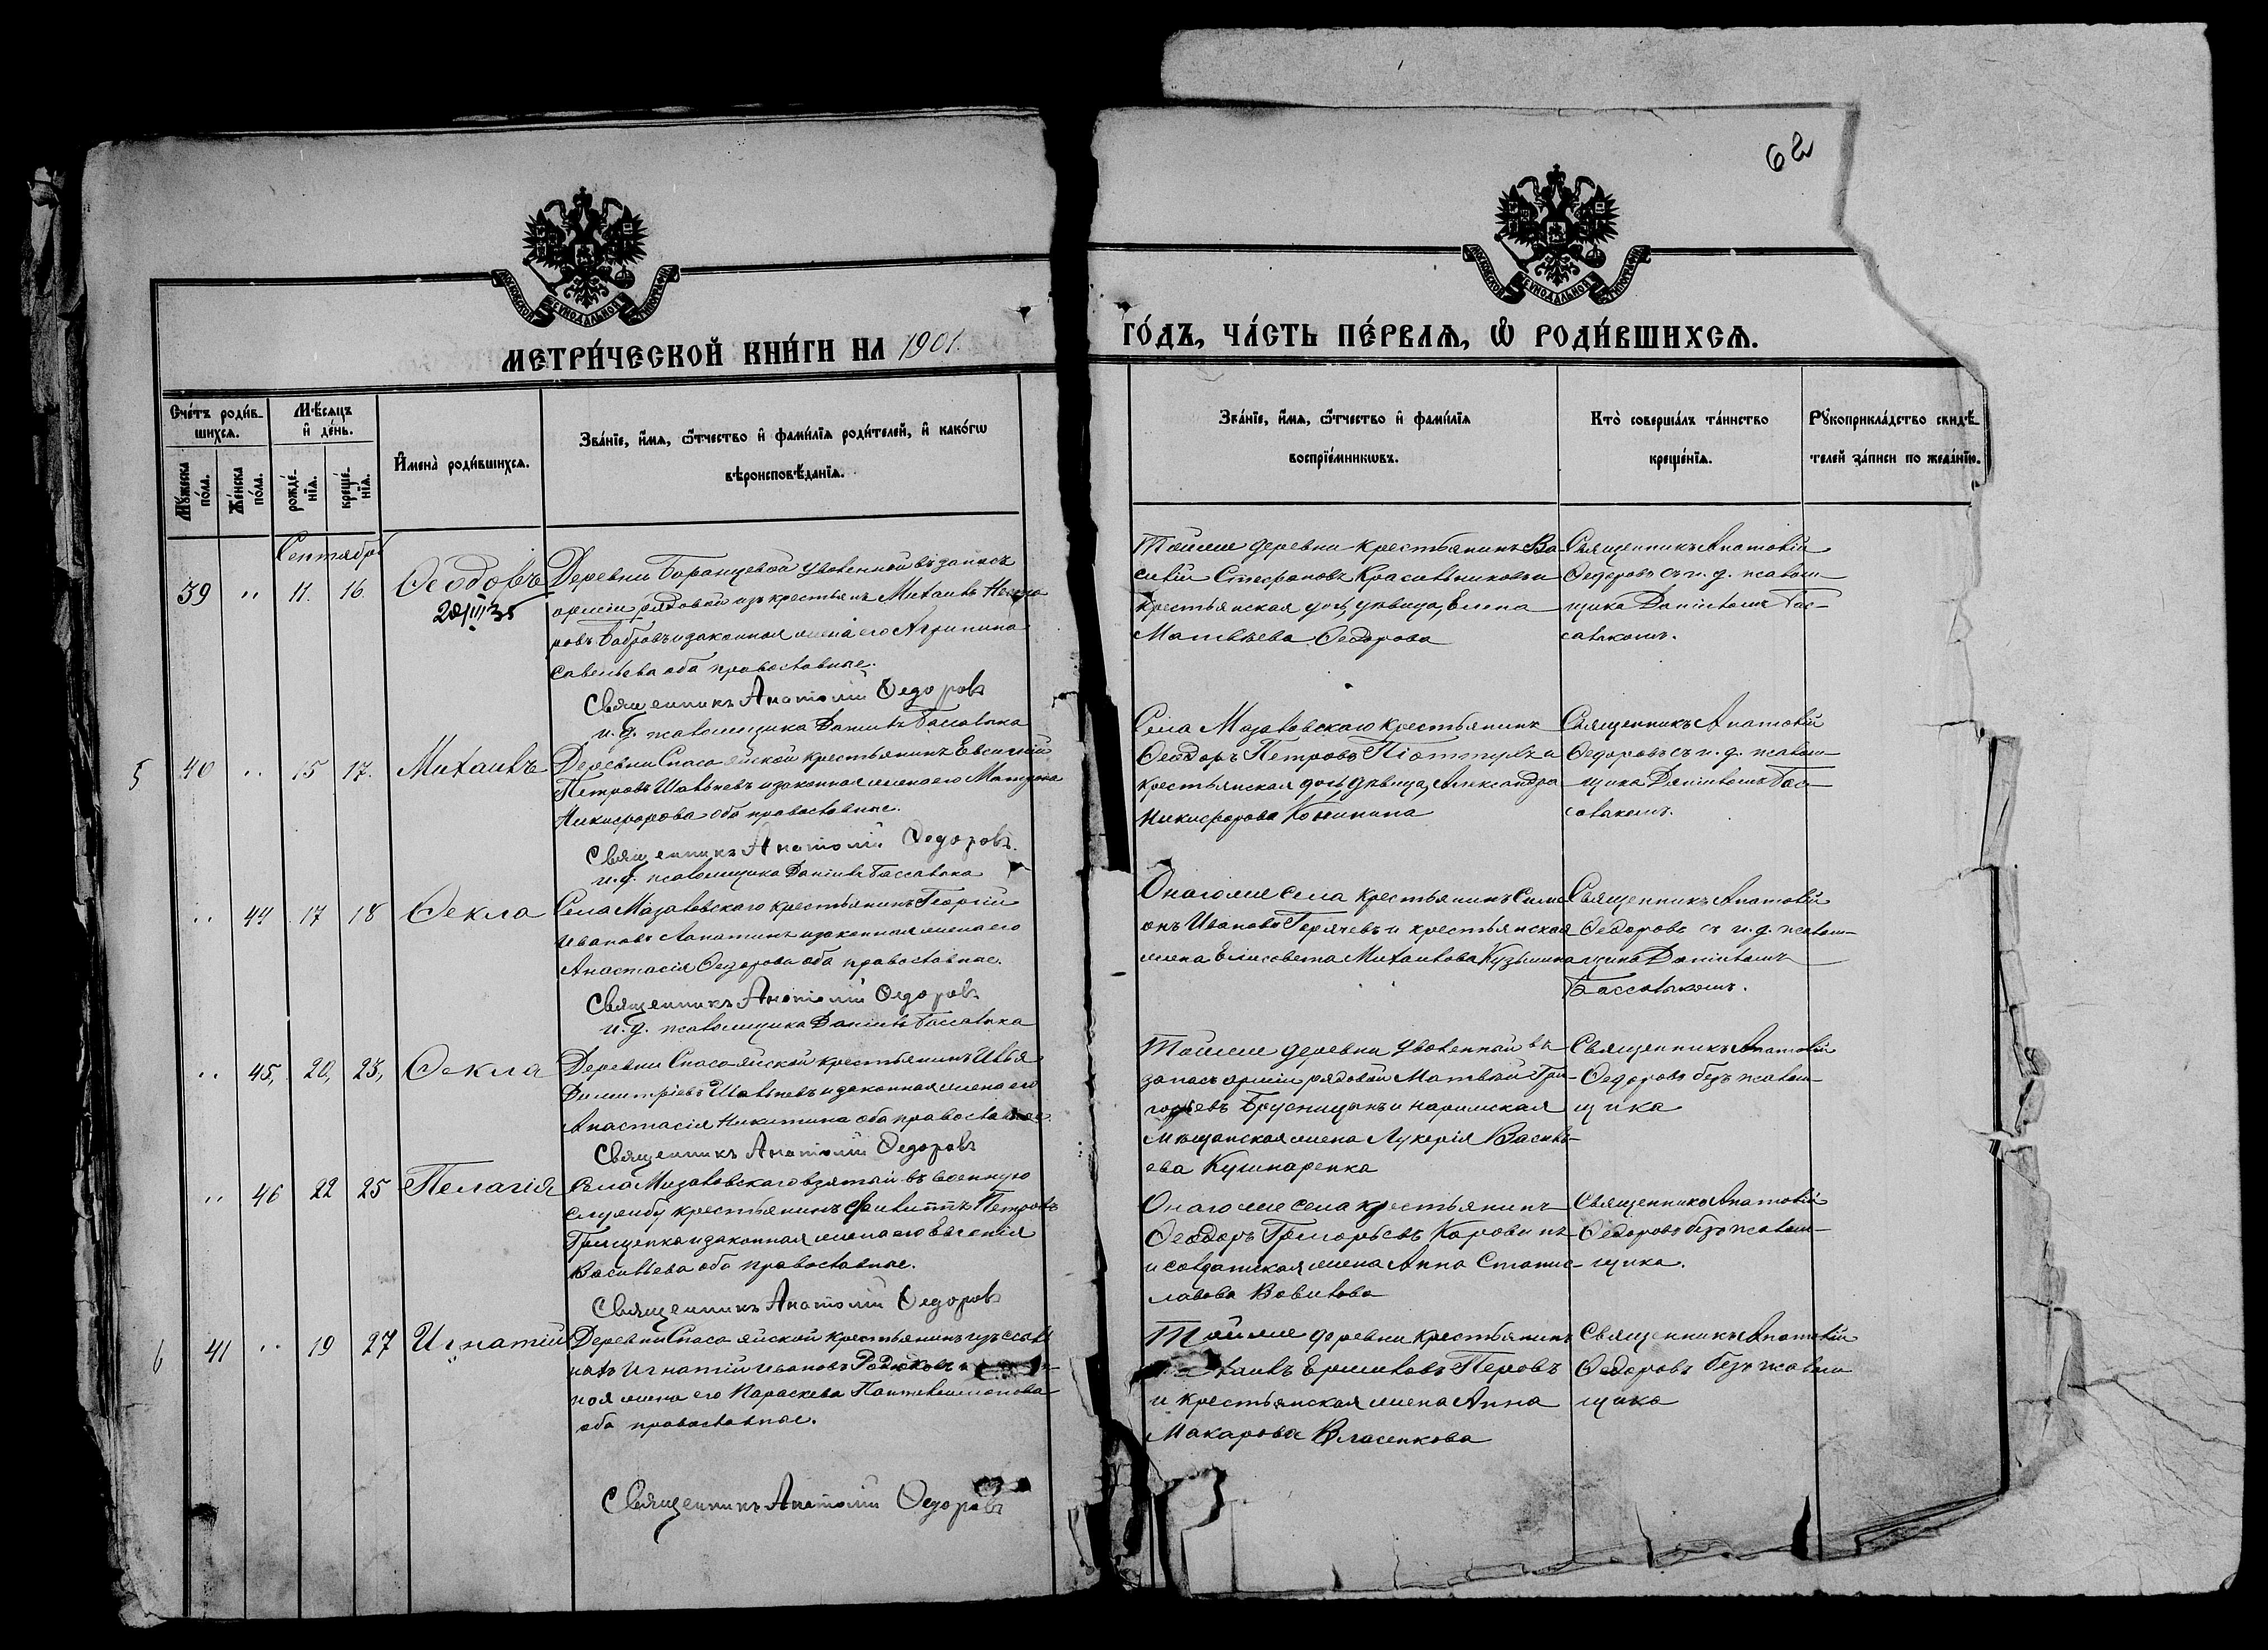 62
МОСКОВСКОЙ СУНОДАЛЬНОЙ ТИПОГРАФІИ
МОСКОВСКОЙ СУНОДАЛЬНОЙ ТИПОГРАФІИ
МЕТРИ́ЧЕСКОЙ КНИ́ГИ НА 1901.
ГО́ДЪ, ЧА́СТЬ ПЕ́РВАѦ, Ѡ҆ РОДИ́ВШИХСѦ.
Сче́тъ роди́в-
шихсѧ.
Мꙋ́жеска по́ла.
Же́нска по́ла.
Мѣ́сѧцъ
и҆ де́нь.
рожде́-
нїѧ.
креще́-
нїѧ.
И҆мена̀ роди́вшихсѧ.
Зва́нїе, и҆́мѧ, ѻ҆́тчество и҆ фами́лїѧ роди́телей, и҆ како́гѡ
вѣроисповѣ́данїѧ.
Зва́нїе, и҆́мѧ, ѻ҆́тчество и҆ фами́лїѧ
воспрїе́мникѡвъ.
Кто̀ соверша́лъ та́инство
креще́нїѧ.
Рꙋкоприкла́дство свидѣ́-
телей за́писи по жела́нїю.
Сентябрь
39 " 11. 16. Ѳеодоръ
28/III 35
Деревни Баранцевой уволенный въ запасъ
арміи рядовой изъ крестьянъ Михаилъ
ровъ Бобровъ и законная жена его Агрипина
Савельева оба православные.
Священникъ Анатолій Ѳедоровъ
и. д. псаломщика Даніилъ Бассалыка
Тойже деревни крестьянинъ Ва-
силій Стефановъ Красильниковъ и
крестьянская дочь, дѣвица, Елена
Матвѣева Ѳедорова
Священникъ Анатолій
Ѳедоровъ съ и. д. псалом-
щика Даніиломъ Бас-
салыкомъ.
5 40 " 15 17. Михаилъ
Деревни Спасо-яйской крестьянинъ Евсигній
Петровъ Шалыевъ и законная жена его Матрона
Никифорова оба православные.
Священникъ Анатолій Ѳедоровъ.
и. д. псаломщика Даніилъ Бассалыка
Села Мазаловскаго крестьянинъ
Ѳеодоръ Петровъ и
крестьянская дочь, дѣвица, Александра
Никифорова Конинина
Священникъ Анатолій
Ѳедоровъ съ и. д. псалом-
щика Даніиломъ Бас-
салыкомъ.
" 44 17 18 Ѳекла
Села Мазаловскаго крестьянинъ Георгій
Ивановъ Лапатинъ и законная жена его
Анастасія Ѳедорова оба православные.
Священникъ Анатолій Ѳедоровъ
и. д. псаломщика Даніилъ Бассалыка
Онагоже села крестьянинъ Симе
онъ Ивановъ Горячевъ и крестьянская
жена Елисовета Михаилова Кузьмина
Священникъ Анатолій
Ѳедоровъ съ и. д. псалом-
щика Даніиломъ
Бассалыкомъ.
" 45, 20, 23, Ѳекла
Деревни Спасо-яйской крестьянинъ Илья
Димитріевъ Шалыевъ и законная жена его
Анастасія Никитина оба православные.
Священникъ Анатолій Ѳедоровъ
Тойже деревни уволенный въ
запасъ арміи рядовой Матвѣй Гри-
горьевъ Брусницынъ и нарымская
мѣщанская жена Лукерія Василь-
ева Кушнаренка
Священникъ Анатолій
Ѳедоровъ безъ псалом-
щика
" 46 22 25 Пелагія
Села Мазаловскаго взятый въ военную
службу крестьянинъ Филиппъ Петровъ
Грищенка и законная жена его Евгенія
Васильева оба православные.
Священникъ Анатолій Ѳедоровъ
Онагоже села крестьянинъ
Ѳеодоръ Григорьевъ Коровинъ
и солдатская жена Анна Станис-
лавова Вовилова
Священникъ Анатолій
Ѳедоровъ безъ псалом-
щика.
6 41 " 19 27 Игнатій
Деревни Спасо-яйской крестьянинъ изъ ссыль
ныхъ Игнатій Ивановъ Родюковъ и
ная жена его Параскева Пантелеимонова
оба православные.
Священникъ Анатолій Ѳедоровъ
Тойже деревни крестьянинъ
Ермиловъ Перовъ
и крестьянская жена Анна
Макарова Власенкова
Священникъ Анатолій
Ѳедоровъ безъ псалом
щика